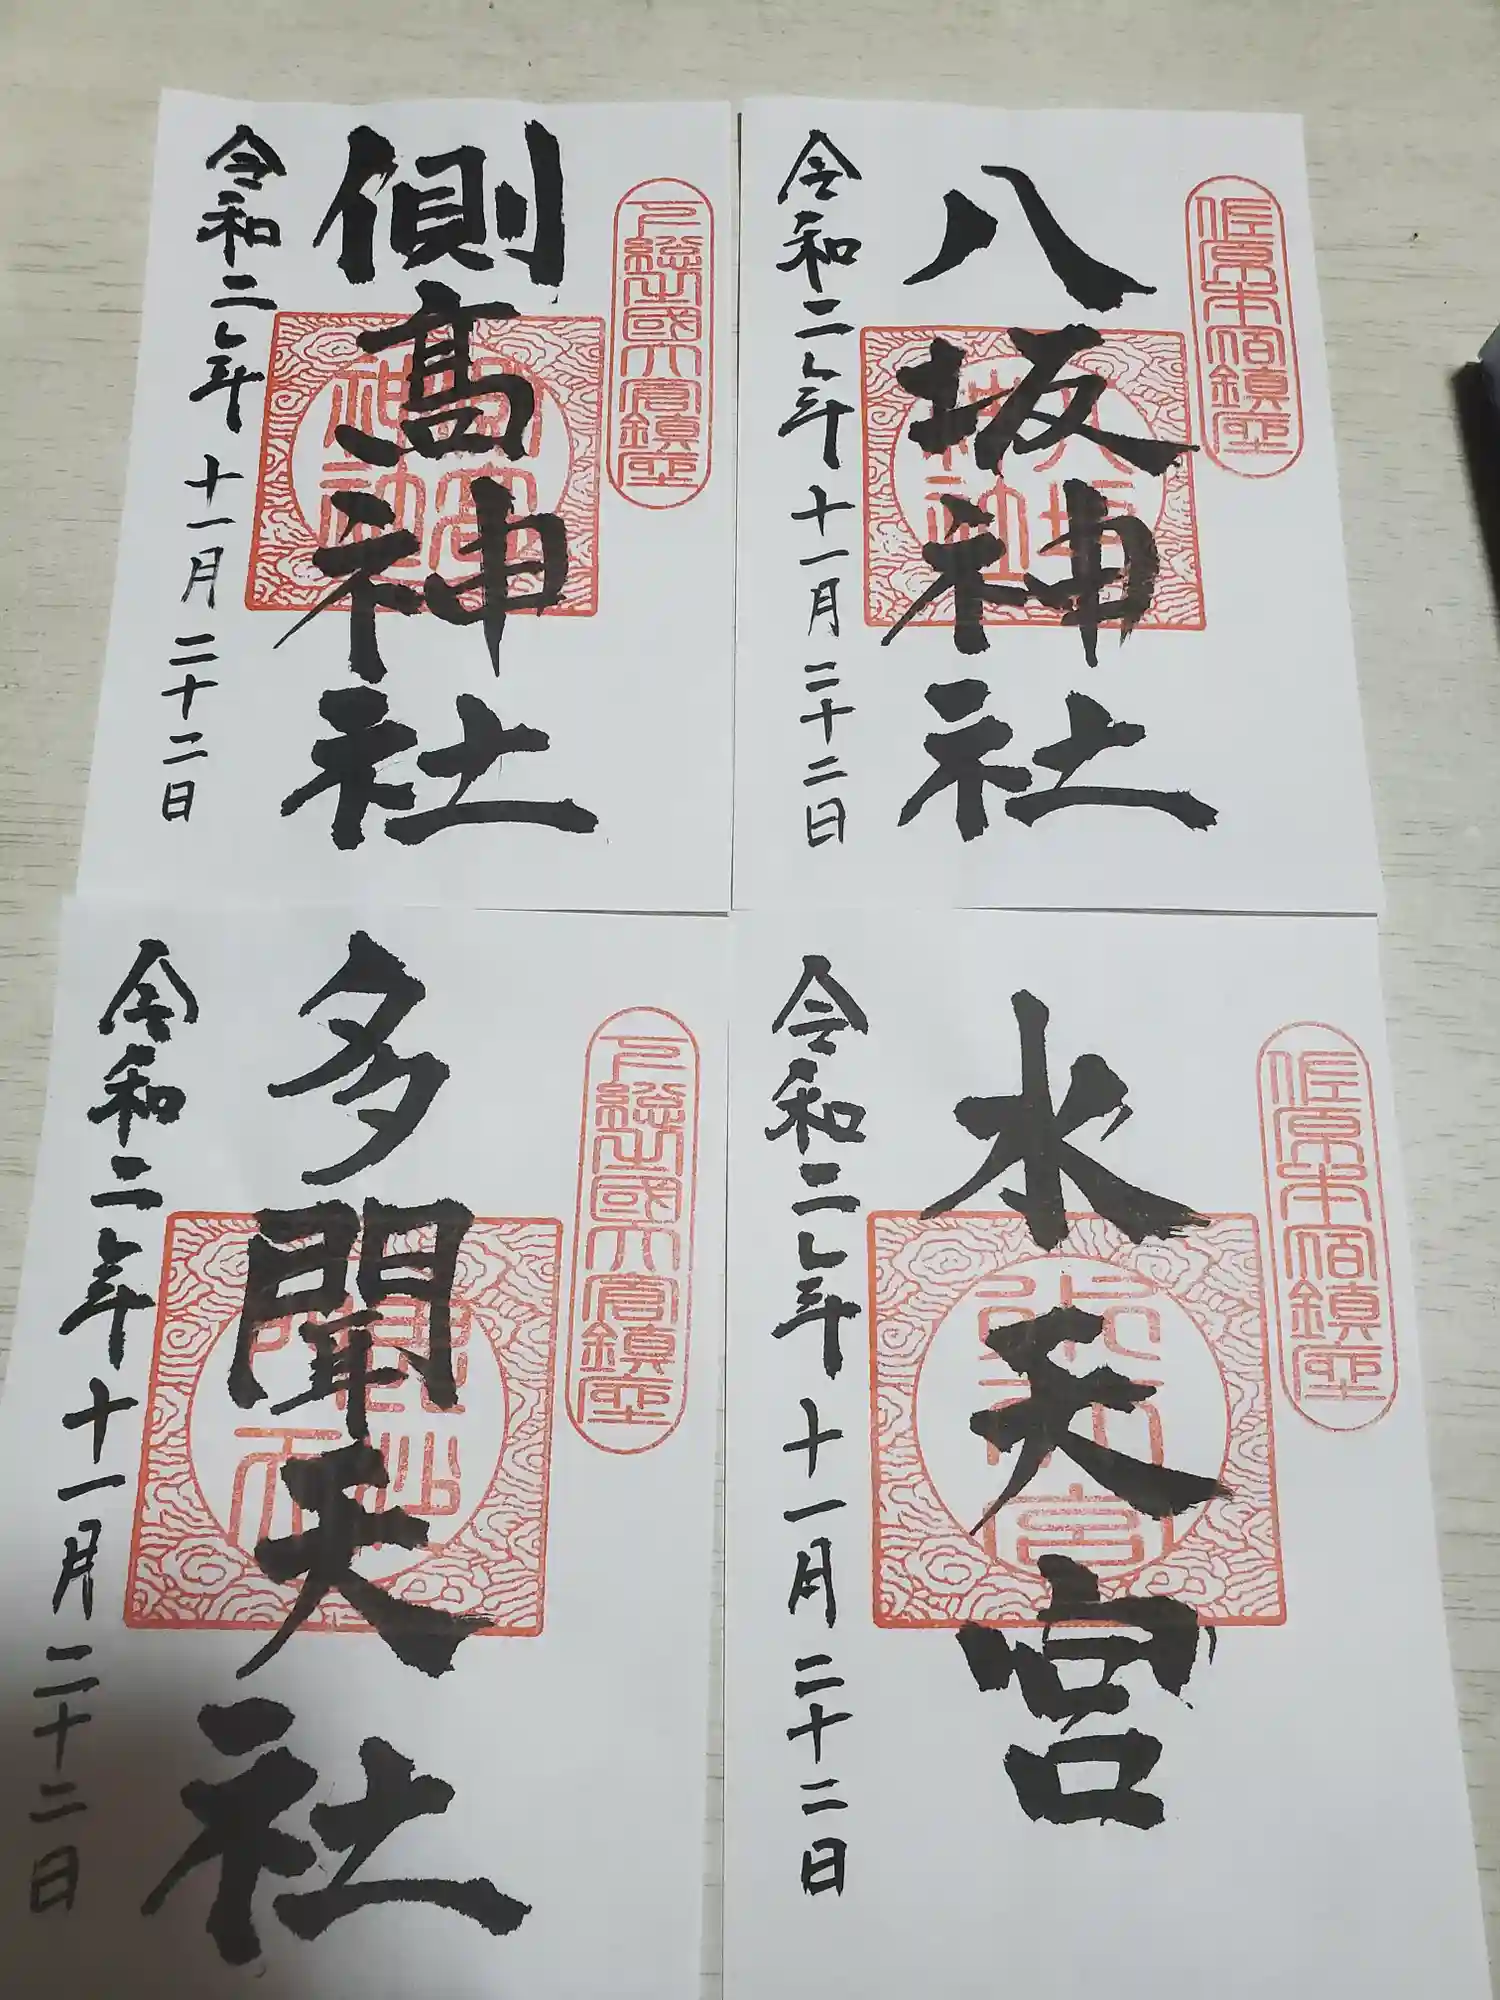 佐原本宿鎮座
八坂神社
令和二年十一月二十二日
下総国大倉鎮座
側高神社
令和二年十一月二十二日
佐原本宿鎮座
水天宮
水天宮
令和二年十一月二十二日
下総国大倉鎮座
多聞天社
令和二年十一月二十二日